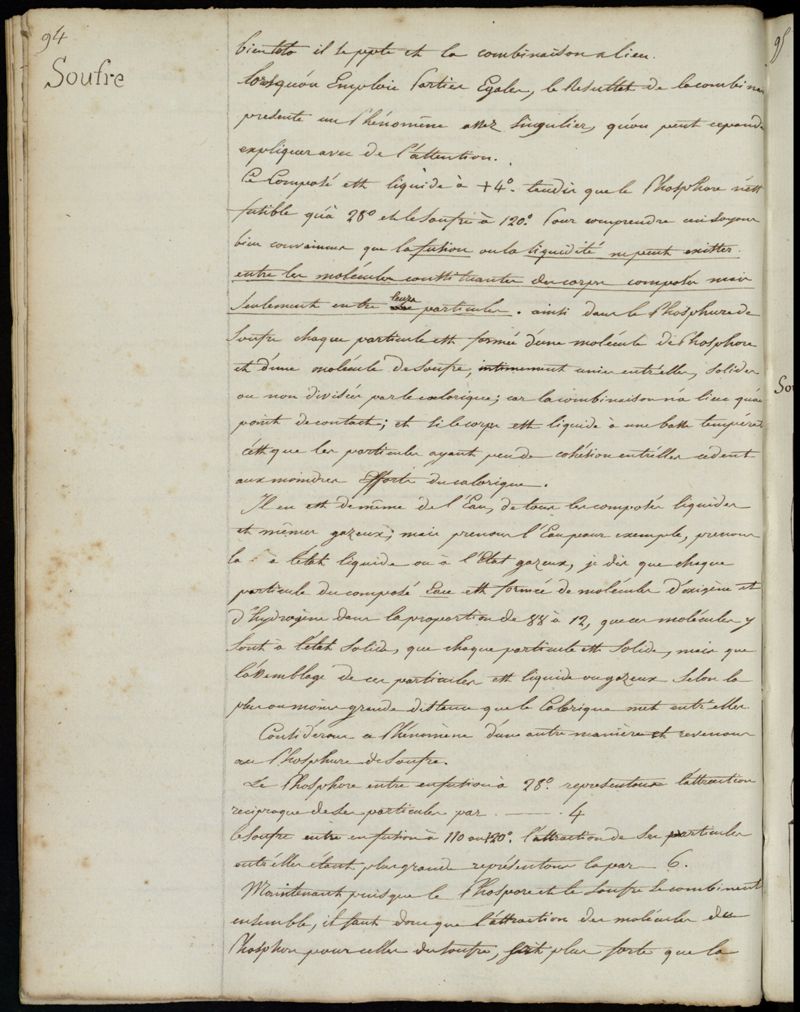 94
Soufre
bientôt il se pepte et la combinaison a lieu.
Lorsqu'on Employe Parties Egales, le Resultat de la combinai
presente un Phénomène assez singulier, qu'on peut cependa
expliquer avec de l'attention.
Ce Composé est liquide à +4°. tandis que le Phosphore n'est
fusible qu'à 28° et le soufre à 120°. Pour comprendre ceci soyons
bien convaincus que la fusion ou la liquidité ne peut exister
entre les molécules constituantes des corps composés mais
seulement entre leurs particules. ainsi dans le Phosphure de
Soufre chaque particule est formée d'une molécule de Phosphore
et d'une molécule de soufre, intimement unies entr'elles, solides
ou non divisées par le calorique; car la combinaison n'a lieu qu'au
point de contact; et si le corps est liquide à une basse tempéra
c'est que les particules ayant peu de cohésion entr'elles cèdent
aux moindres Efforts du calorique.
Il en est de même de l'Eau, de tous les composés liquides
et mêmes gazeux; mais prenons l'Eau pour exemple, prenons
la à l'etat liquide ou à l'Etat gazeux, je dis que chaque
particule du composé Eau est formée de molécules d'oxigène et
d'hydrogène dans la proportion de 88 à 12, que ces molécules y
sont à l'état solide, que chaque particule est solide, mais que
l'assemblage de ces particules est liquide ou gazeux selon la
plus ou moins grande distance que le Calorique met entr'elles
Considérons ce Phénomène d'une autre manière et revenons
au Phosphure de Soufre.
Le Phosphore entre en fusion à 28°. representons l'attraction
reciproque de ses particules par ——— 4
le soufre entre en fusion à 110 ou 120°. l'attraction de ses particules
entr'elles étant plus grande représentons la par 6.
Maintenant puisque le Phospore et le soufre se combinent
ensemble, il faut donc que l'attraction des molécules du
Phosphore pour celles du soufre, soit plus forte que la
95
So